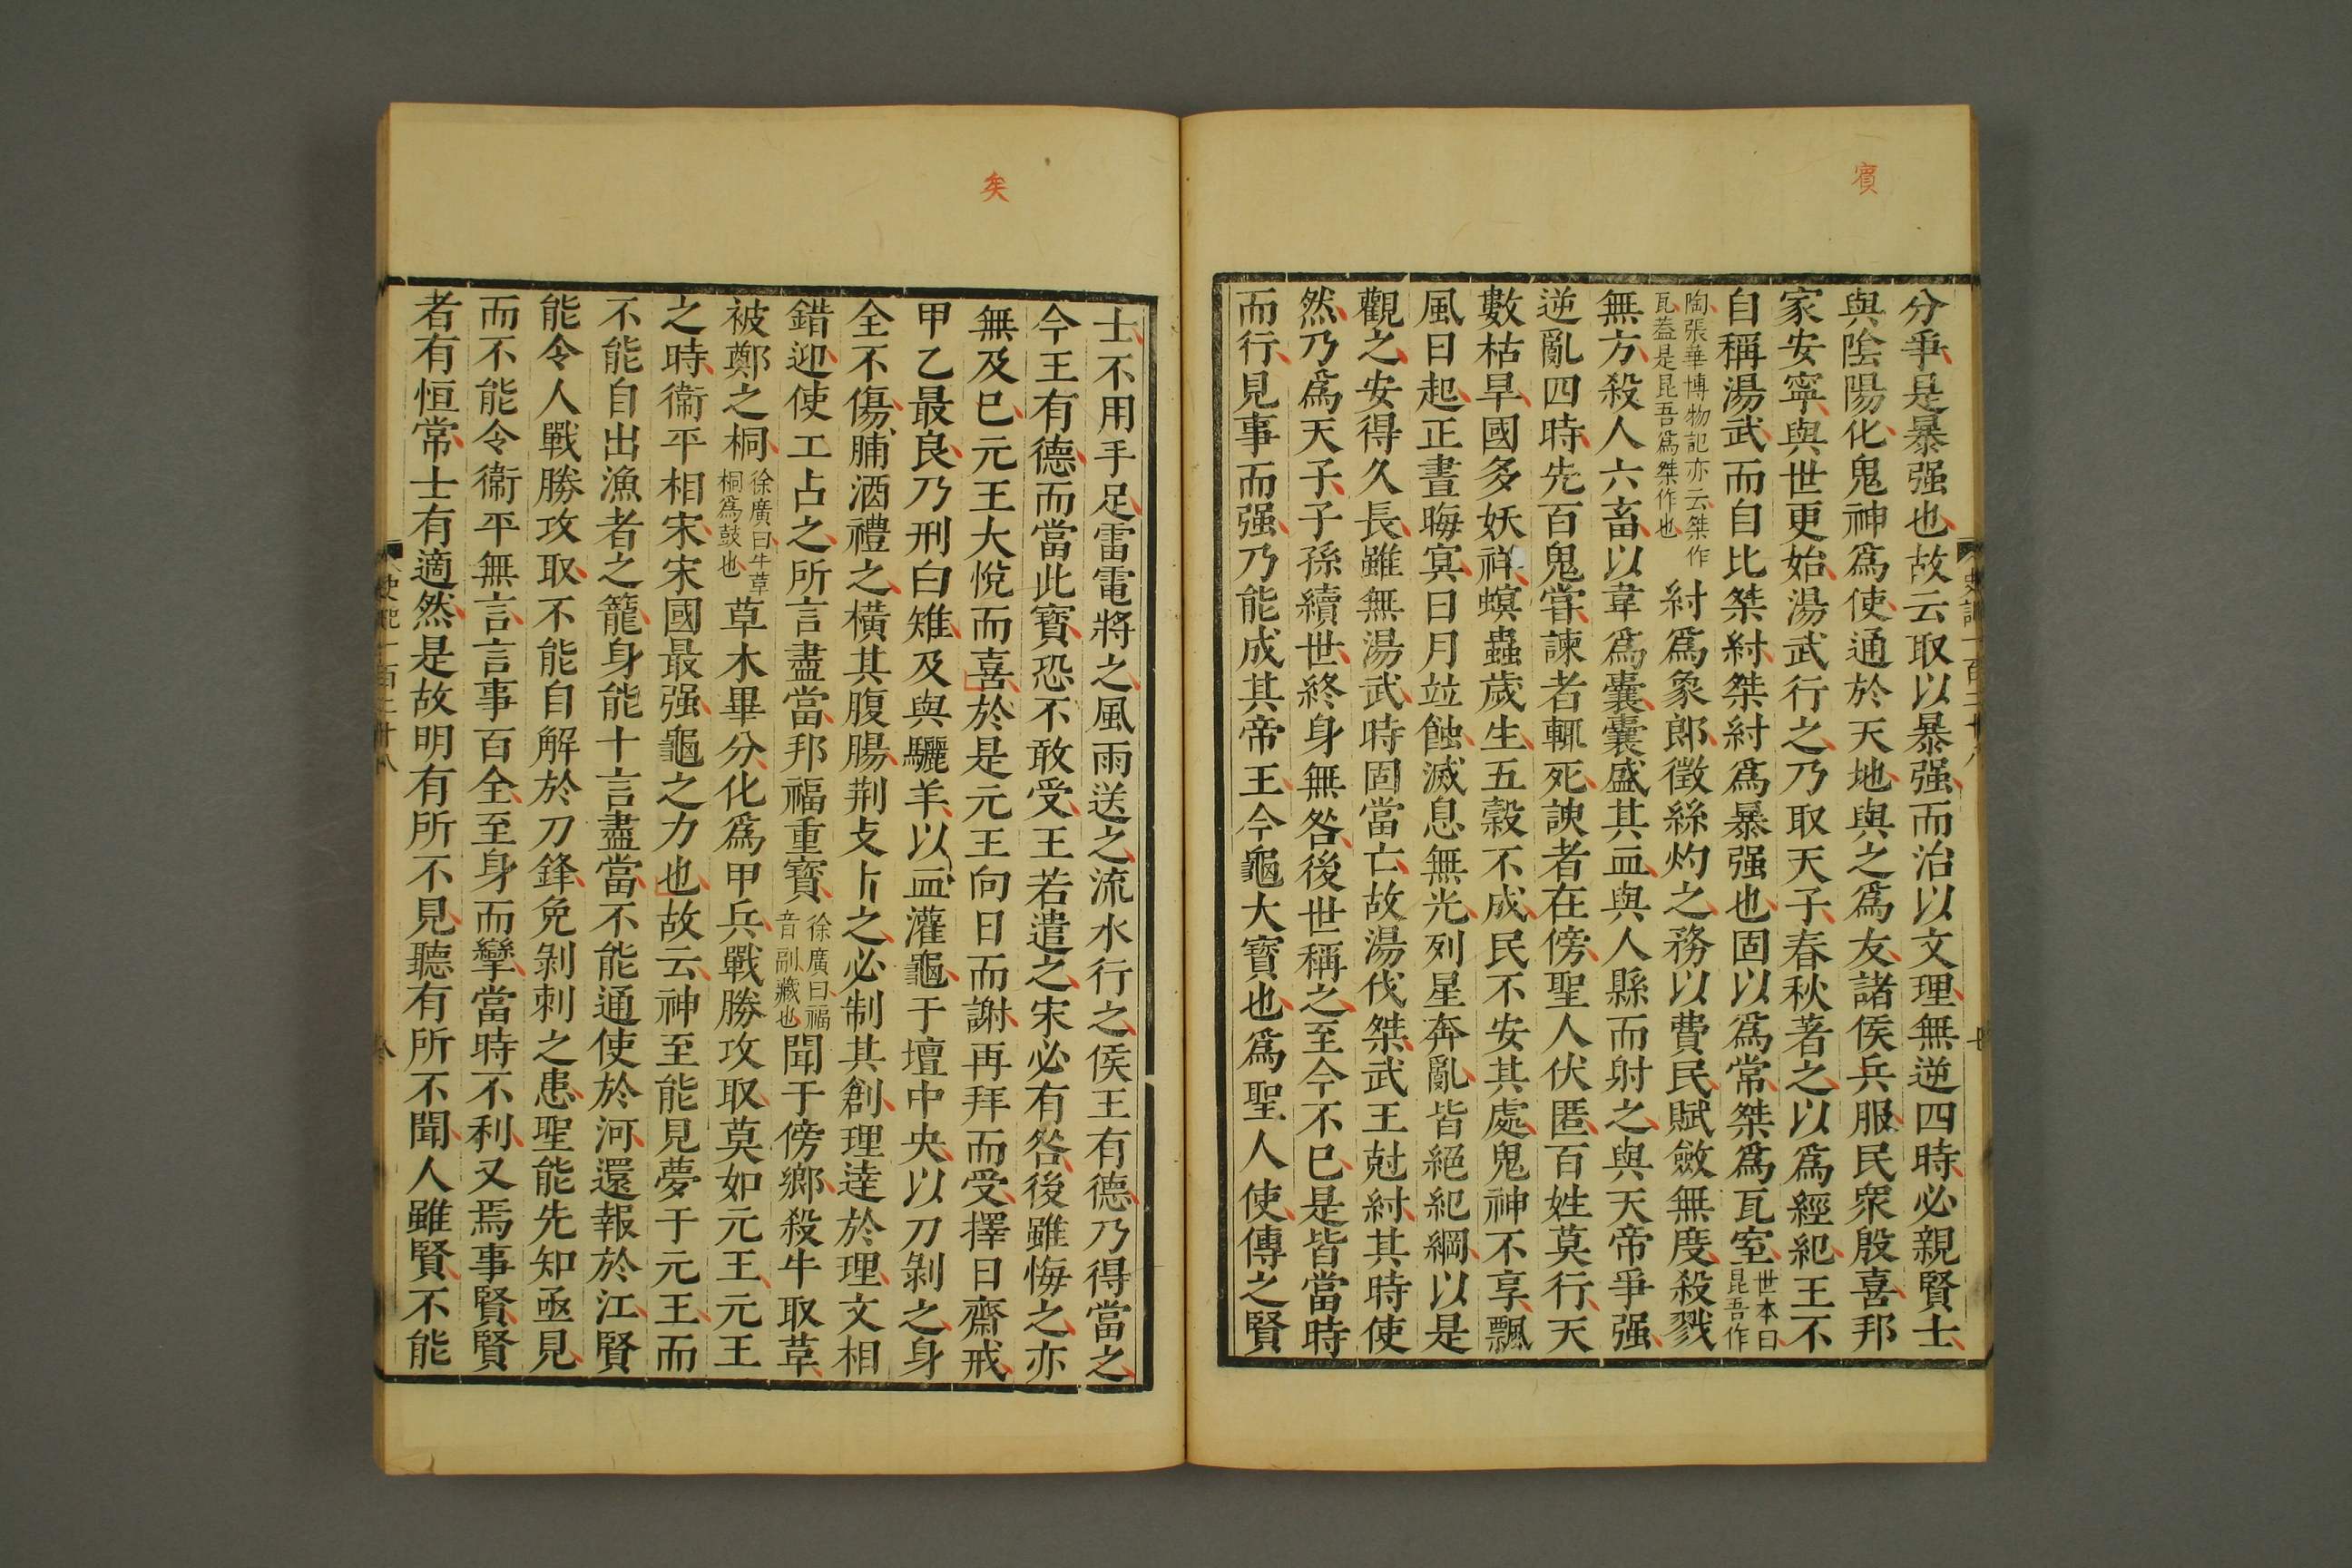 賓
分爭是暴强也故云取以暴强而治以文理無逆四時必親賢士
與陰陽化鬼神爲使通於天地與之爲友諸侯兵服民衆殷喜邦
家安寧與世更始湯武行之乃取天子春秋著之以爲經紀王不
自稱湯武而自比桀紂桀紂爲暴强也固以爲常桀爲瓦室世本曰昆吾作
陶張華博物記亦云桀作瓦葢是昆吾爲桀作也紂爲象郎徵絲灼之務以費民賦斂無度殺戮
無方殺人六畜以韋爲囊囊盛其血與人縣而射之與天帝爭强
逆亂四時先百鬼嘗諫者輒死諛者在傍聖人伏匿百姓莫行天
數枯旱國多妖祥螟蟲歲生五穀不成民不安其處鬼神不享飄
風日起正晝晦冥日月竝蝕滅息無光列星奔亂皆絕紀綱以是
觀之安得久長雖無湯武時固當亡故湯伐桀武王尅紂其時使
然乃爲天子子孫續世終身無咎後世稱之至今不已是皆當時
而行見事而强乃能成其帝王今龜大寶也爲聖人使傳之賢
史記一百二十八
矣
士不用手足雷電將之風雨送之流水行之侯王有德乃得當之
今王有德而當此寶恐不敢受王若遣之宋必有咎後雖悔之亦
無及已元王大悅而喜於是元王向日而謝再拜而受擇日齋戒
甲乙最良乃刑白雉及與驪羊以血灌龜于壇中央以刀剝之身
全不傷脯酒禮之橫其腹腸荆攴卜之必制其創理逹於理文相
錯迎使工占之所言盡當邦福重寶徐廣曰福音副藏也聞于傍鄉殺牛取革
被鄭之桐徐廣曰牛革桐爲鼓也草木畢分化爲甲兵戰勝攻取莫如元王元王
之時衞平相宋宋國最强龜之力也故云神至能見夢于元王而
不能自出漁者之籠身能十言盡當不能通使於河還報於江賢
能令人戰勝攻取不能自解於刀鋒免剝刺之患聖能先知亟見
而不能令衞平無言言事百全至身而攣當時不利又焉事賢賢
者有恒常士有適然是故明有所不見聽有所不聞人雖賢不能
史記一百二十八